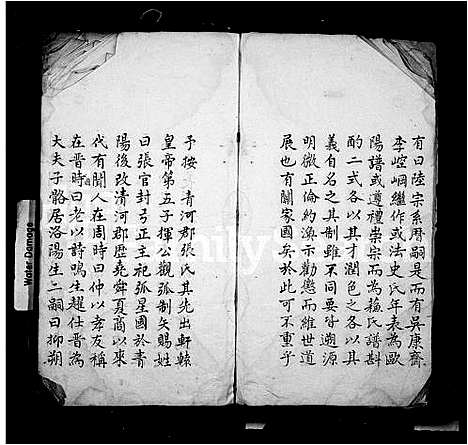 有曰陸宗系曆嗣是而有吳康齋
李崆峒繼作或法史氏年表為歐
陽譜或遵禮崇宗而為蘇氏譜斟
酌二式各以其才潤色之各以其
義自名之其制雖不同要皆遡源
明微正倫約渙示勸懲而維世道
展也有關家國矣於此可不重乎
予按 青河郡張氏其先出軒轅
皇帝第五子揮公觀弧制矢賜姓
曰張官封弓正主祀弧星國於青
陽後改清河郡歷堯舜夏商以來
代有聞人在周時曰仲以孝友稱
在晋時曰老以詩鳴生趯仕晋為
大夫子骼居洛陽生二嗣曰抑朔
Water Damage